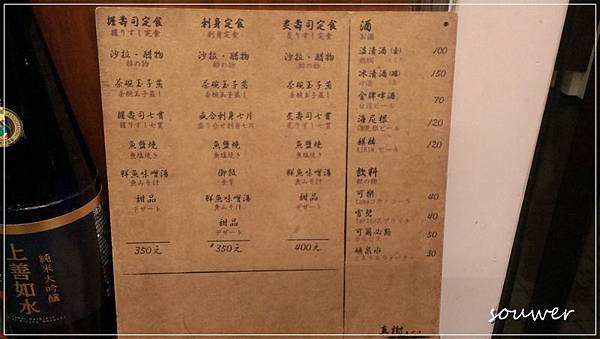 握壽司定食
握りすし定食
沙拉、醋物
酢の物
茶碗玉子蒸
茶碗玉子蒸し
握壽司七貫
握りすし七貫
魚鹽燒
魚塩焼き
鮮魚味噌湯
魚みそ汁
甜品
デザート
350元
刺身定食
刺身定食
沙拉、醋物
酢の物
茶碗玉子蒸
茶碗玉子蒸し
盛合刺身七片
盛り合せ刺身七片
魚鹽燒
魚塩焼き
御飯
鮮魚味噌湯
魚みそ汁
甜品
デザート
350元
炙壽司定食
炙りすし定食
沙拉、醋物
酢の物
茶碗玉子蒸
茶碗玉子蒸し
炙壽司七貫
炙りすし七貫
魚鹽燒
魚塩焼き
鮮魚味噌湯
魚みそ汁
甜品
デザート
400元
酒
お酒
溫清酒(壺) 100
冰清酒(罐) 150
金牌啤酒 70
台湾ビール
海尼根 120
海尼根ビール
麒麟 120
KIRIN ビール
飲料
飲み物
可樂 40
雪碧 40
可爾必斯 50
カルピス
礦泉水 30
ミネラルウォーター
上善如水
純米大吟醸
souwer